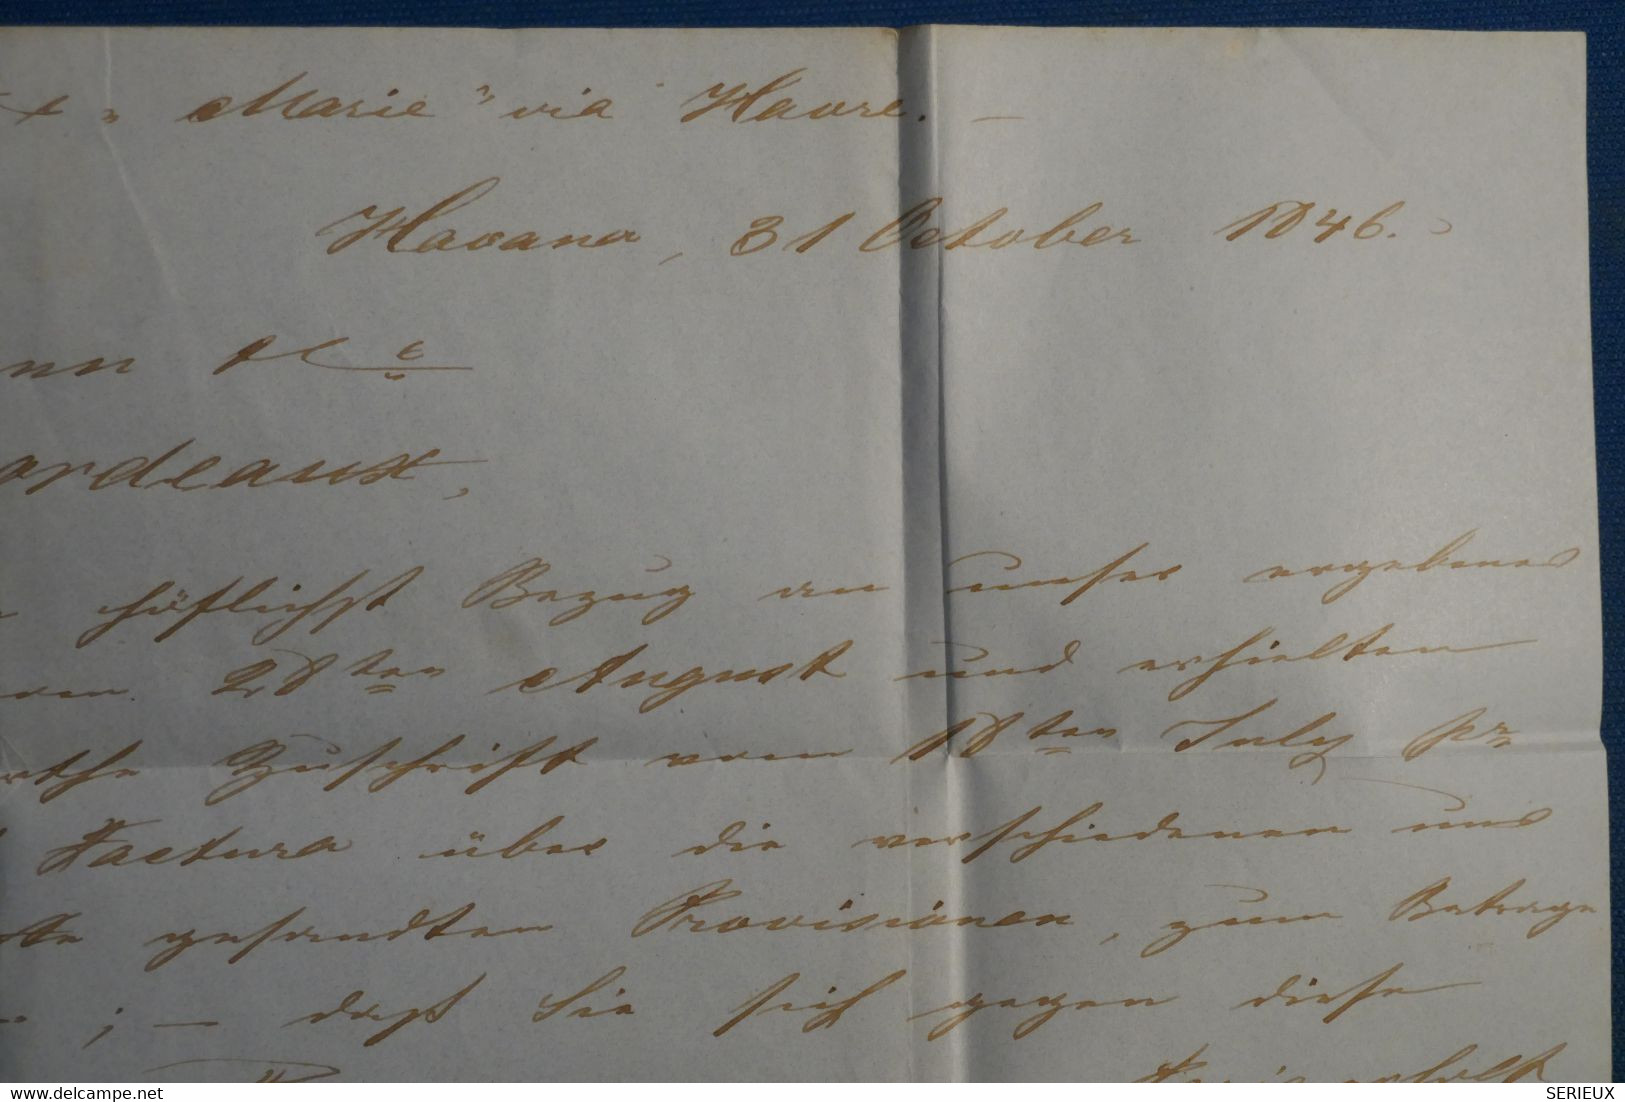 „Marie" via Havre. –
Havana, 31 October 1846.
ordeaux,
höflichst Bezug an unser ergebenes
28ten August und erhielten
rthe Zuschrift vom 18ten July pr
Factura über die verschiedenen uns
gesandten Provisionen, zum Betrage
; – daß Sie sich gegen diese
SERIEUX